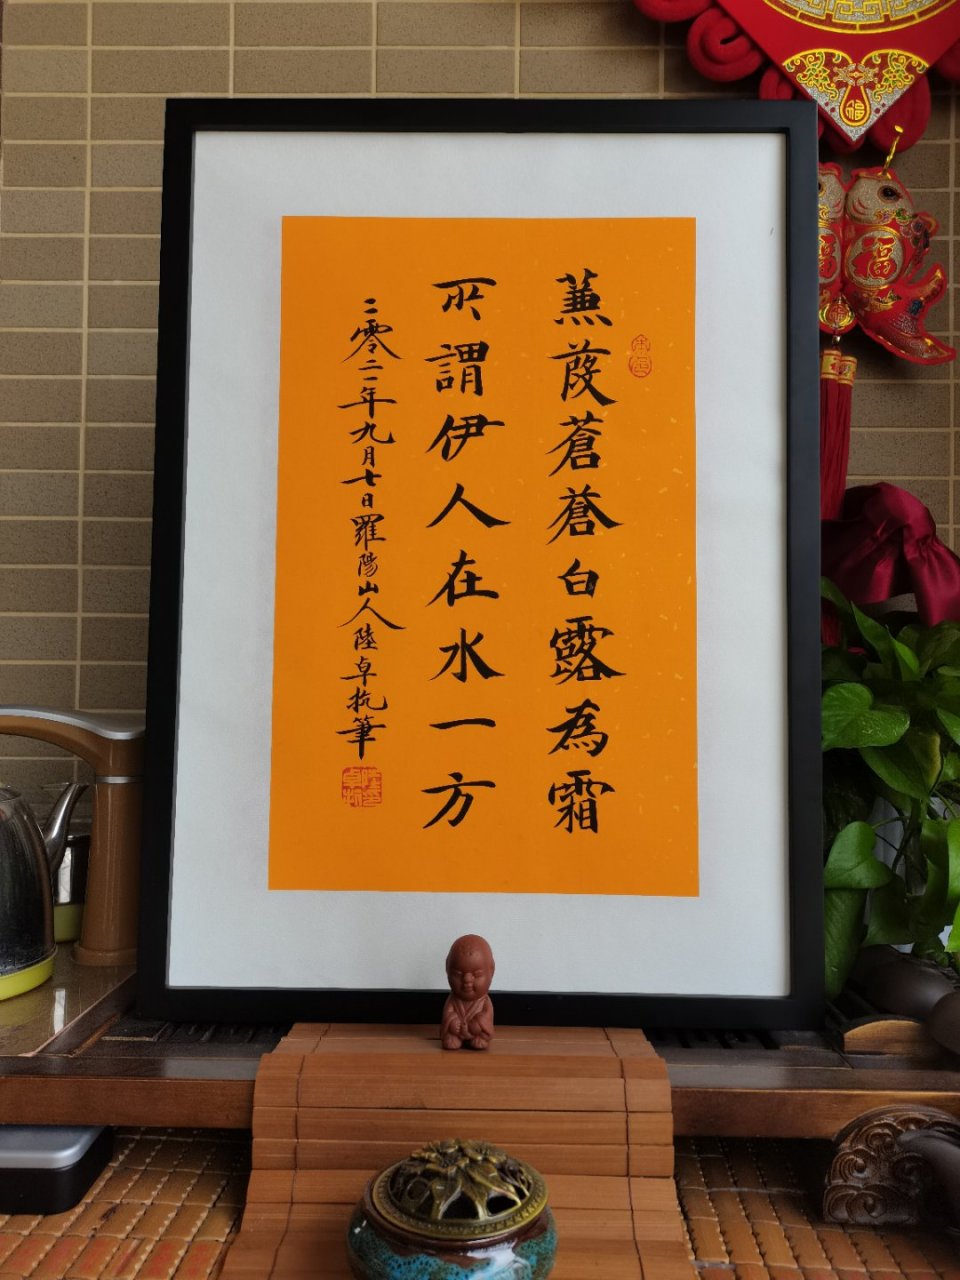 蒹葭蒼蒼白露為霜
所謂伊人在水一方
二零二一年九月七日羅陽山人陸卓杭筆
福
福